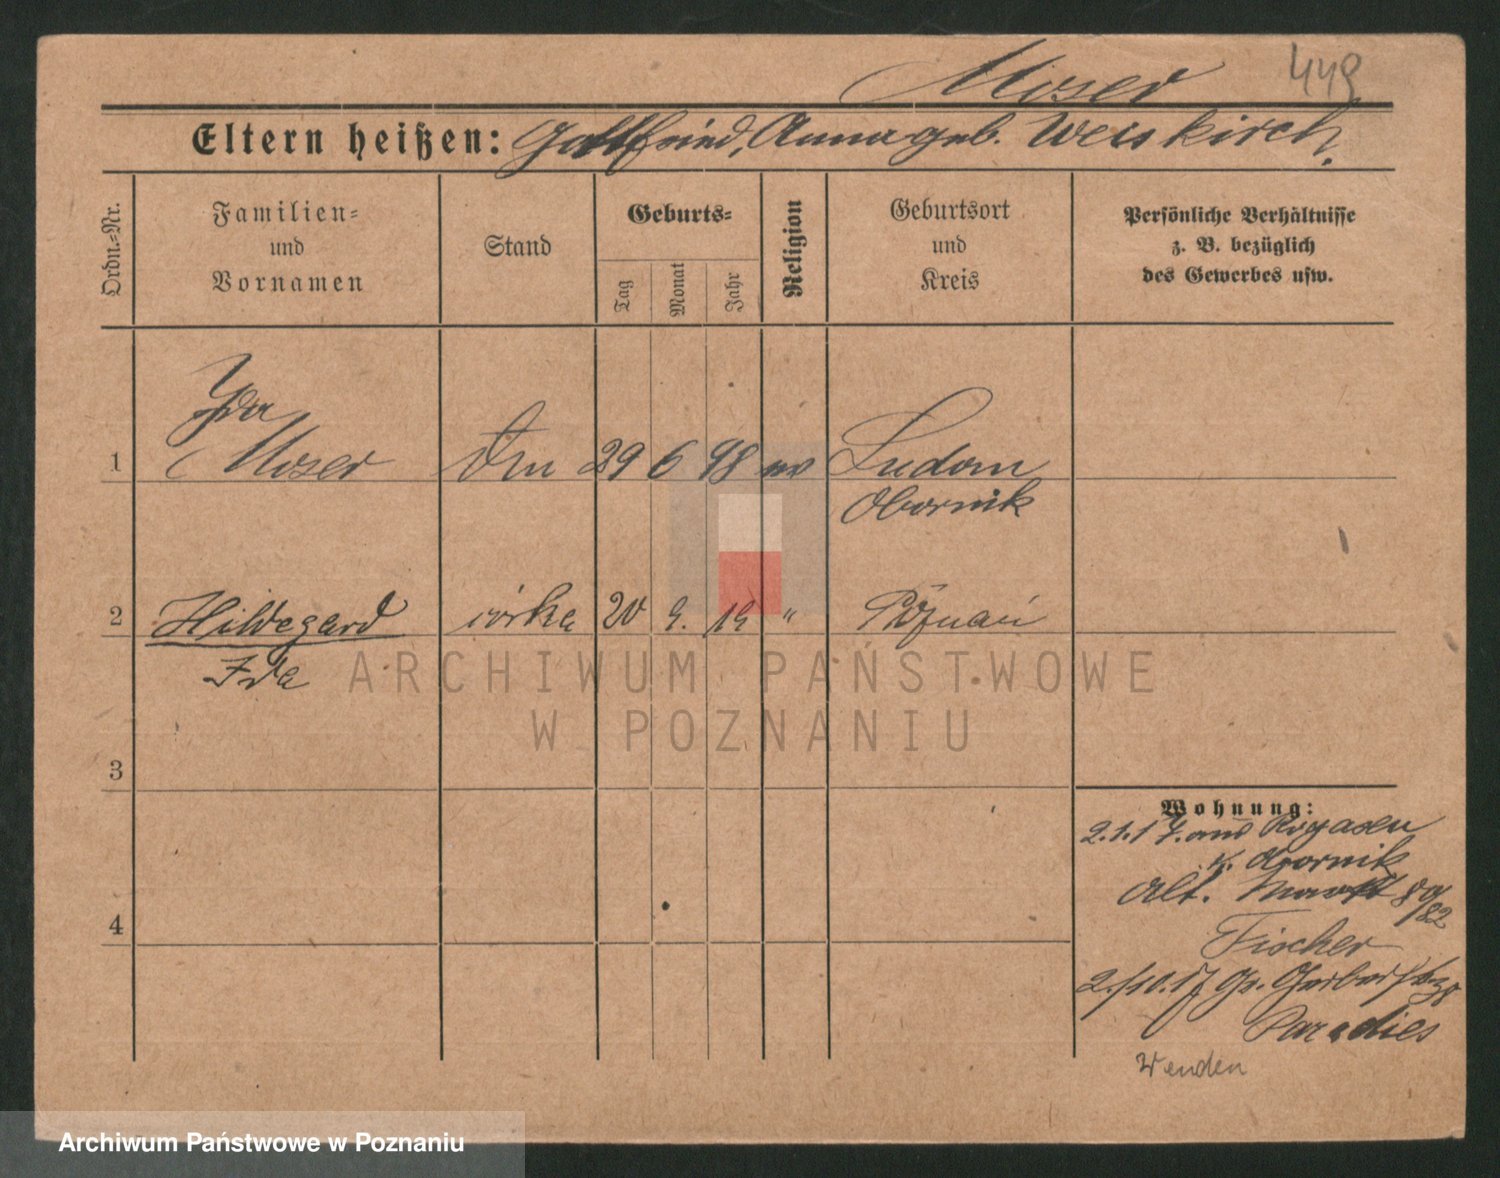 Moser 449
Eltern heißen: Gottfried, Anna geb. Weiskirch.
Ordn.-Nr.
Familien-
und
Vornamen
Stand
Geburts-
Tag
Monat
Jahr
Religion
Geburtsort
und
Kreis
Persönliche Verhältnisse
z. B. bezüglich
des Gewerbes usw.
Ida
1 Moser 29 6 98 ev Ludom
Obornik
2 Hildegard córka 20 9. 19 " Poznań
Ida
ARCHIWUM PAŃSTWOWE
W POZNANIU
3
Wohnung:
2.1.17. aus Rogasen
K. Obornik
Alt. Markt 80/82
4
Fischer
2./10.17 Gr. Gerberstr. 38
Paradies
Wenden
Archiwum Państwowe w Poznaniu